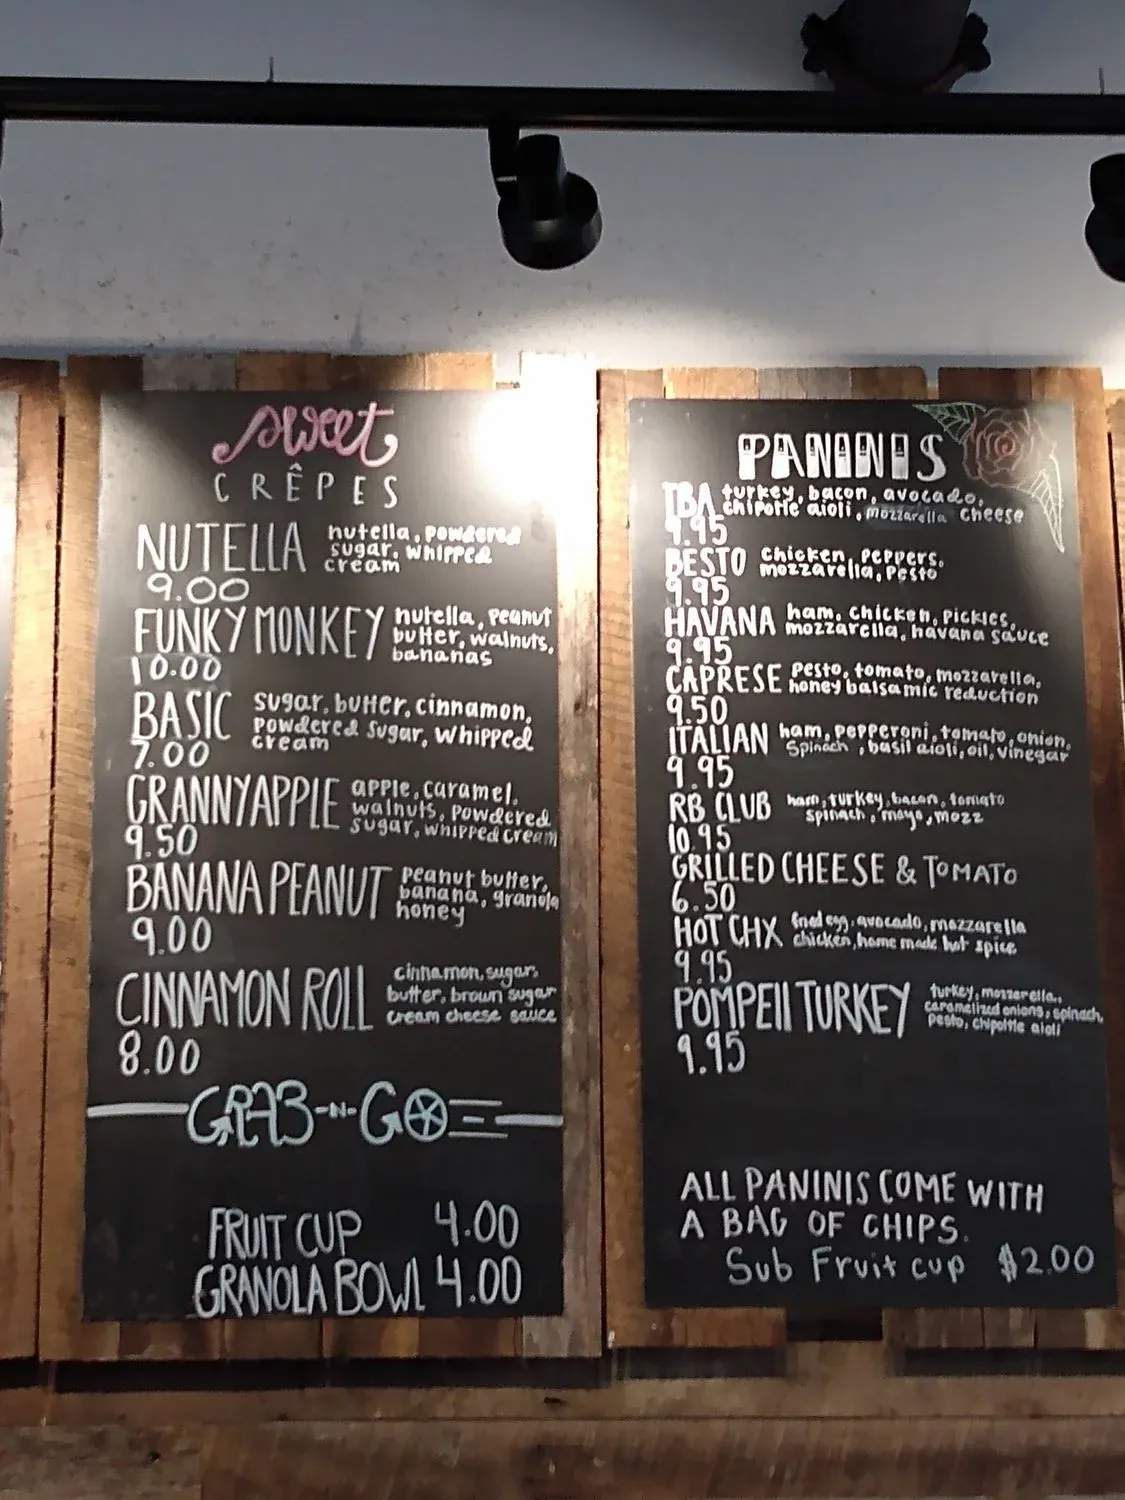 sweet
CRÊPES
NUTELLA nutella, powdered
sugar, whipped
cream
9.00
FUNKY MONKEY nutella, peanut
butter, walnuts,
bananas
10.00
BASIC sugar, butter, cinnamon,
powdered sugar, whipped
cream
7.00
GRANNYAPPLE apple, caramel,
walnuts, powdered
sugar, whipped cream
9.50
BANANA PEANUT peanut butter,
banana, granola
honey
9.00
CINNAMON ROLL cinnamon, sugar,
butter, brown sugar
cream cheese sauce
8.00
GRAB-N-GO
FRUIT CUP 4.00
GRANOLA BOWL 4.00
PANINIS
TBA turkey, bacon, avocado,
chipotle aioli, mozzarella cheese
9.95
BESTO chicken, peppers,
mozzarella, pesto
9.95
HAVANA ham, chicken, pickles,
mozzarella, havana sauce
9.95
CAPRESE pesto, tomato, mozzarella,
honey balsamic reduction
9.50
ITALIAN ham, pepperoni, tomato, onion,
spinach, basil aioli, oil, vinegar
9.95
RB CLUB ham, turkey, bacon, tomato
spinach, mayo, mozz
10.95
GRILLED CHEESE & TOMATO
6.50
HOT CHX fried egg, avocado, mozzarella
chicken, home made hot spice
9.95
POMPEII TURKEY turkey, mozzarella,
caramelized onions, spinach,
pesto, chipotle aioli
9.95
ALL PANINIS COME WITH
A BAG OF CHIPS.
Sub Fruit cup $2.00